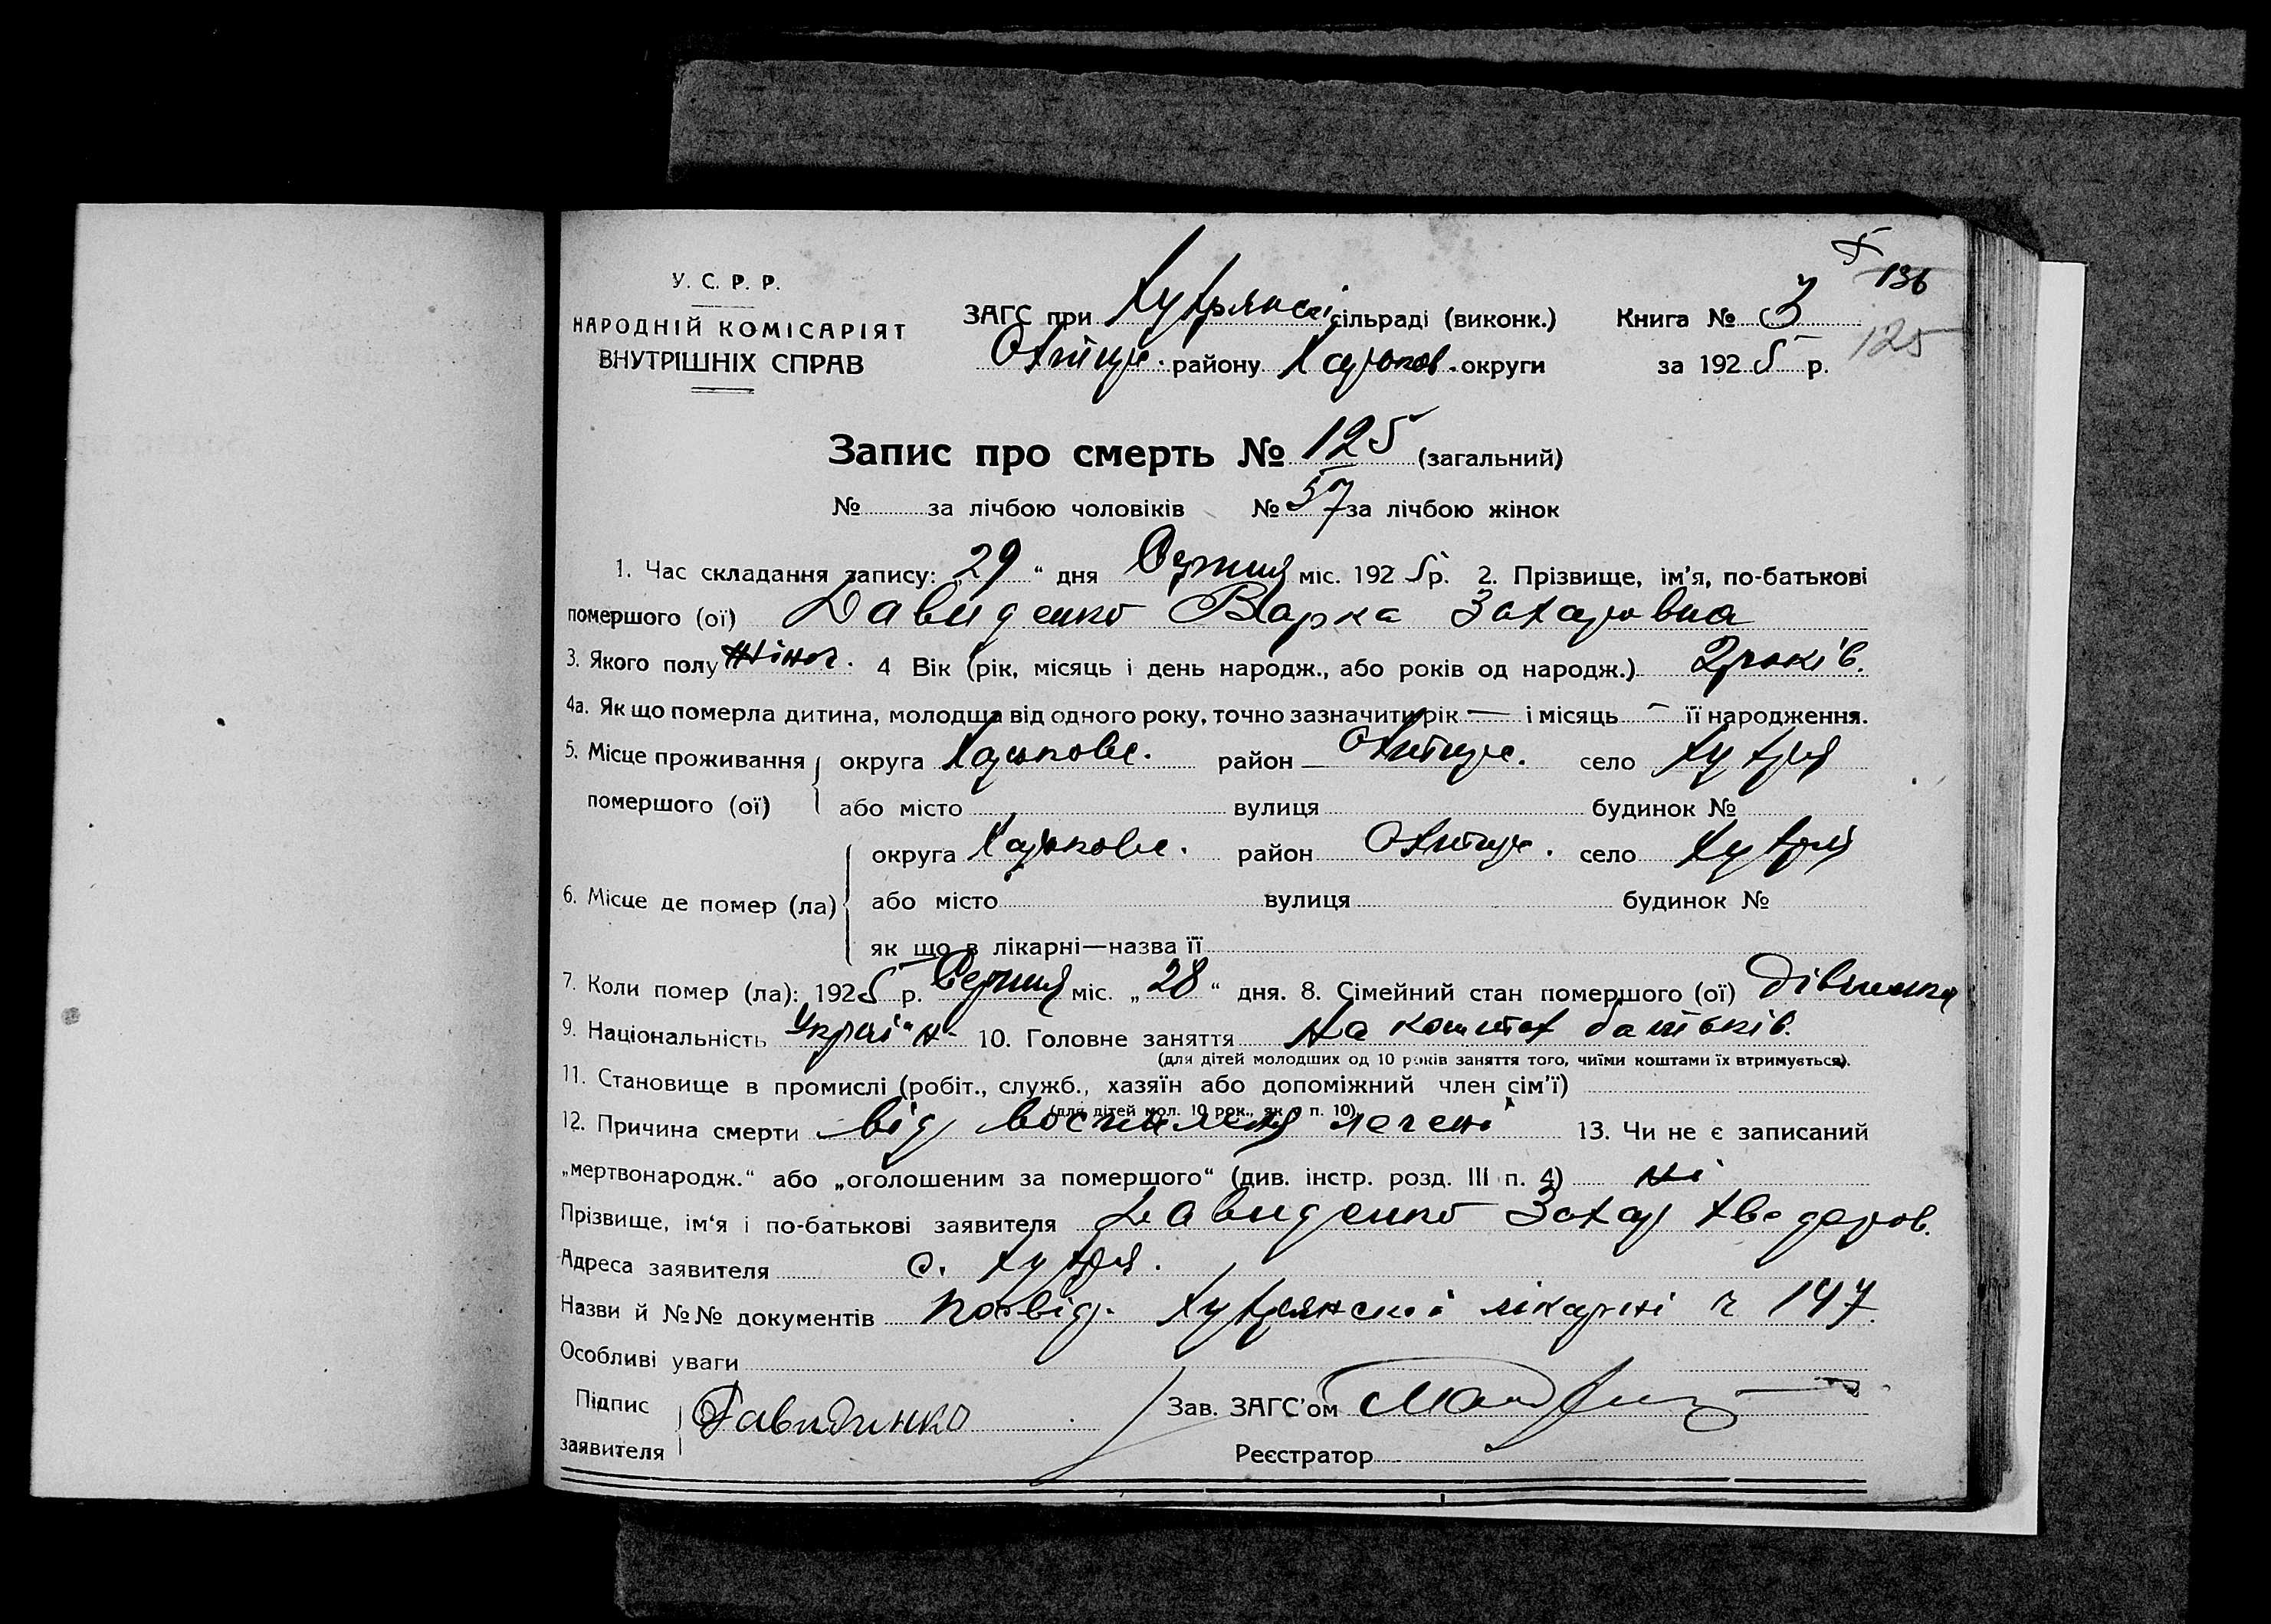 136
У. С. Р. Р.
НАРОДНІЙ КОМІСАРІЯТ
ВНУТРІШНІХ СПРАВ
ЗАГС при Хухрянскі сільраді (виконк.)
Охтирс. району Харьков. округи
Книга № 3
за 1925 р.
125
Запис про смерть № 125 (загальний)
№ за лічбою чоловіків № 57 за лічбою жінок
1. Час складання запису: „29“ дня Серпня міс. 1925 р. 2. Прізвище, ім'я, по-батькові
помершого (ої) Давиденко Варка Захаровна
3. Якого полу жіноч. 4 Вік (рік, місяць і день народж., або років од народж.) 2 років.
4а. Як що померла дитина, молодща від одного року, точно зазначити рік — і місяць — її народження.
5. Місце проживання помершого (ої) округа Харьковс. район Охтирс. село Хухря
або місто вулиця будинок №
6. Місце де помер (ла) округа Харьковс. район Охтирс. село Хухря
або місто вулиця будинок №
як що в лікарні—назва її
7. Коли помер (ла): 1925 р. Серпня міс. „28“ дня. 8. Сімейний стан помершого (ої) дівчинка
9. Національність Україн 10. Головне заняття на коштах батьків.
(для дітей молодших од 10 років заняття того, чиїми коштами їх втримується).
11. Становище в промислі (робіт., служб., хазяїн або допоміжний член сім'ї)
(для дітей мол. 10 рок., як в п. 10)
12. Причина смерти від воспиления легені 13. Чи не є записаний
„мертвонародж.“ або „оголошеним за помершого“ (див. інстр. розд. III п. 4) ні
Прізвище, ім'я і по-батькові заявителя Давиденко Захар Хведоров.
Адреса заявителя с. Хухря.
Назви й №№ документів посвід. Хухрянської лікарні ч 147.
Особливі уваги
Підпис заявителя Давидинко Зав. ЗАГС'ом
Реєстратор